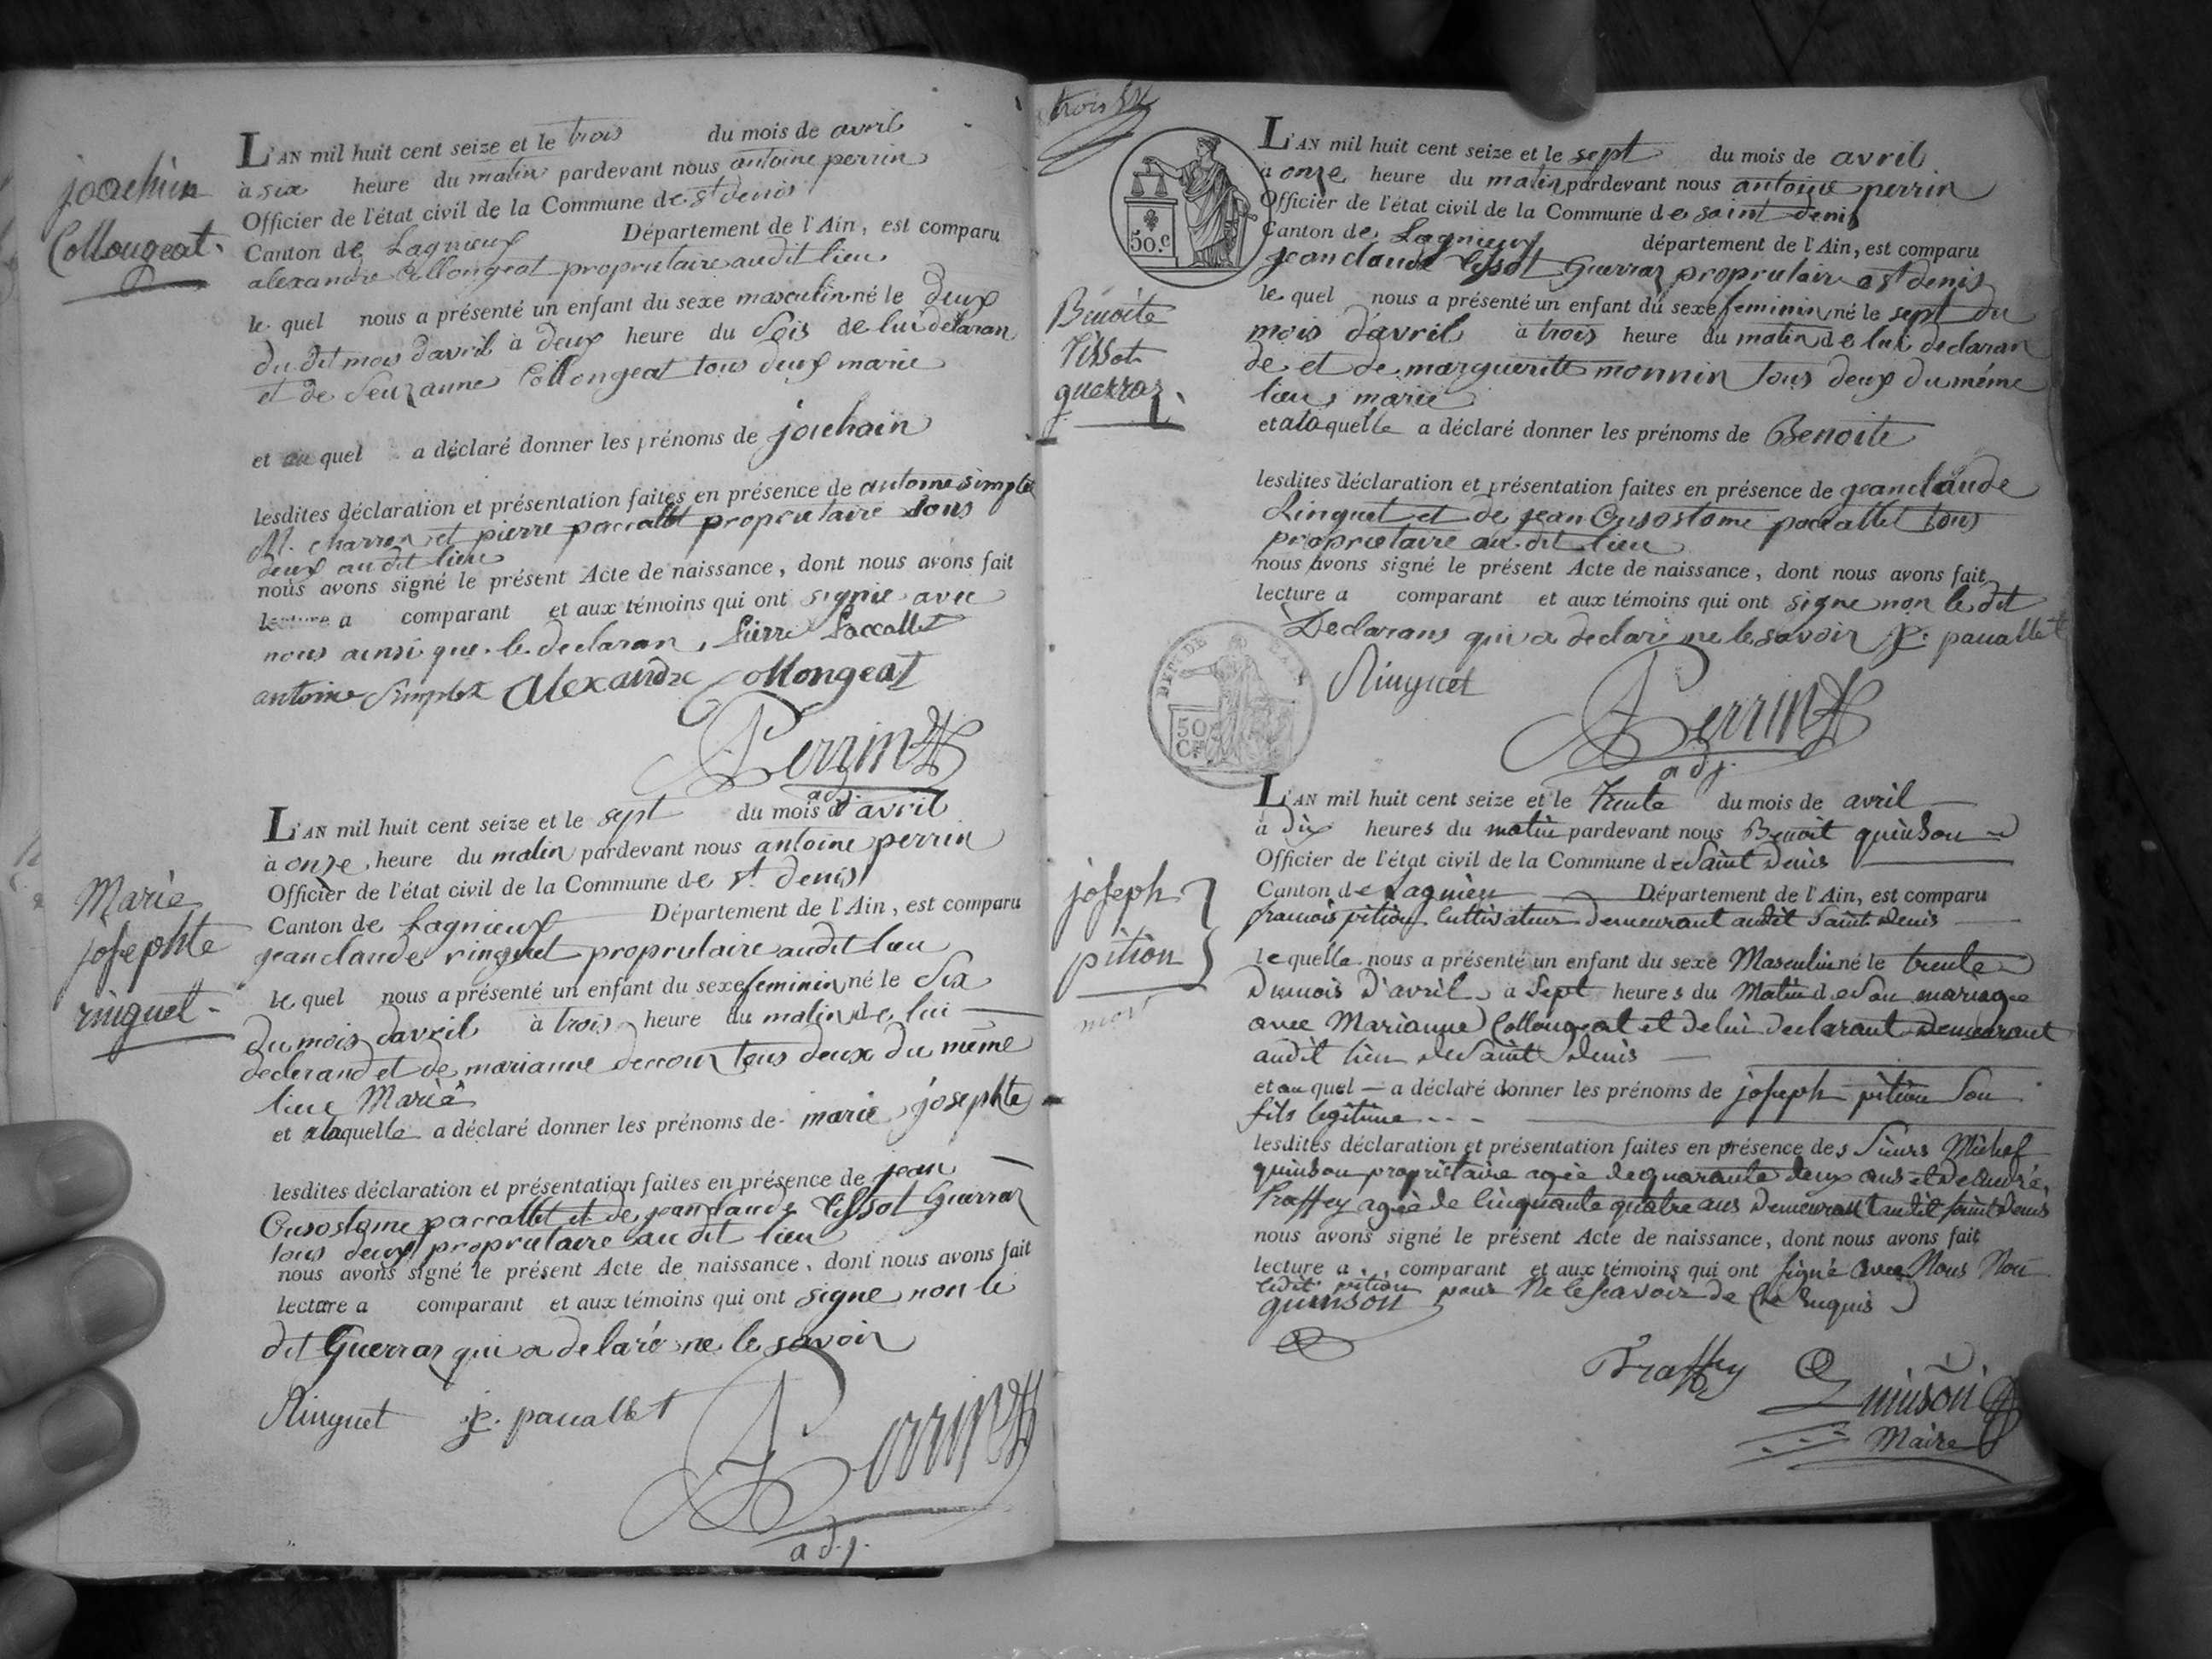 joachim
Collongeat.
L'AN mil huit cent seize et le trois du mois de avril
à six heure du matin pardevant nous antoine perrin
Officier de l'état civil de la Commune de st denis
Canton de Lagnieux Département de l'Ain, est comparu
alexandre Collongeat proprietaire audit lieu
le quel nous a présenté un enfant du sexe masculin né le deux
du dit mois d'avril à deux heure du Sois de lui declaran
et de Seuzanne Collongeat tous deux marie
et au quel a déclaré donner les prénoms de jouhain
lesdites déclaration et présentation faites en présence de antoine simplet
M. charron et pierre paccallet proprietaire tous
deux audit lieu
nous avons signé le présent Acte de naissance, dont nous avons fait
lecture a comparant et aux témoins qui ont signie avec
nous ainsi que le declaran, Pierre Paccallet
antoine Simplet Alexandre Collongeat
Perrin
adj.
Marie
josephte
ringuet
L'AN mil huit cent seize et le sept du mois d'avril
à onze heure du matin pardevant nous antoine perrin
Officier de l'état civil de la Commune de st. denis
Canton de Lagnieux Département de l'Ain, est comparu
jeanclaude ringuet proprietaire audit lieu
le quel nous a présenté un enfant du sexe feminin né le Six
du mois d'avril à trois heure du matin de lui
declerand et de marianne tous deux du même
lieu Marié
et a laquelle a déclaré donner les prénoms de marie josephte
lesdites déclaration et présentation faites en présence de jean
Crisostome paccallet et de jeanclaude tissot Guerraz
tous deux proprietaire audit lieu
nous avons signé le présent Acte de naissance, dont nous avons fait
lecture a comparant et aux témoins qui ont signe non le
dit Guerraz qui a delaré ne le savoir
Ringuet jc. pacallet
Perrin
adj.
trois
50.c
Benoite
Tissot
guerraz
L'AN mil huit cent seize et le sept du mois de avril
à onze heure du matin pardevant nous antoine perrin
Officier de l'état civil de la Commune de saint denis
Canton de Lagnieux département de l'Ain, est comparu
jeanclaude tissot Guerraz proprietaire a st denis
le quel nous a présenté un enfant du sexe feminin né le sept du
mois d'avril à trois heure du matin de lui declaran
de et de marguerite monnin tous deux du même
lieu marié
et a laquelle a déclaré donner les prénoms de Benoite
lesdites déclaration et présentation faites en présence de jeanclaude
Ringuet et de jean Crisostome paccallet tous
proprietaire au dit lieu
nous avons signé le présent Acte de naissance, dont nous avons fait
lecture a comparant et aux témoins qui ont signe non le dit
Declarans qui a declaré ne le savoir jc. pacallet
DEPT. DE L'AIN
50
Cs
Ringuet
Perrin
adj.
joseph
pition
mort
L'AN mil huit cent seize et le trente du mois de avril
à dix heures du matin pardevant nous Benoit quinson
Officier de l'état civil de la Commune de Saint Denis
Canton de Lagnieu Département de l'Ain, est comparu
francois pition Cultivateur Demeurant audit Saint Denis
le quelle nous a présenté un enfant du sexe Masculin né le trente
Dumois D'avril à Sept heures du Matin de Son mariage
avec Marianne Collongeat et de lui declarant Demeurant
audit lieu de Saint Denis
et au quel a déclaré donner les prénoms de joseph pition Son
fils legitime
lesdites déclaration et présentation faites en présence des Sieurs Michel
quinson propriétaire agée de quarante deux ans et De André
Traffey agée de Cinquante quatre ans Demeurant audit Saint Denis
nous avons signé le présent Acte de naissance, dont nous avons fait
lecture a comparant et aux témoins qui ont signé avec Nous Non
ledit pition pour Ne le Scavoir de Ce Enquis
quinson
Traffey Quinson
Maire